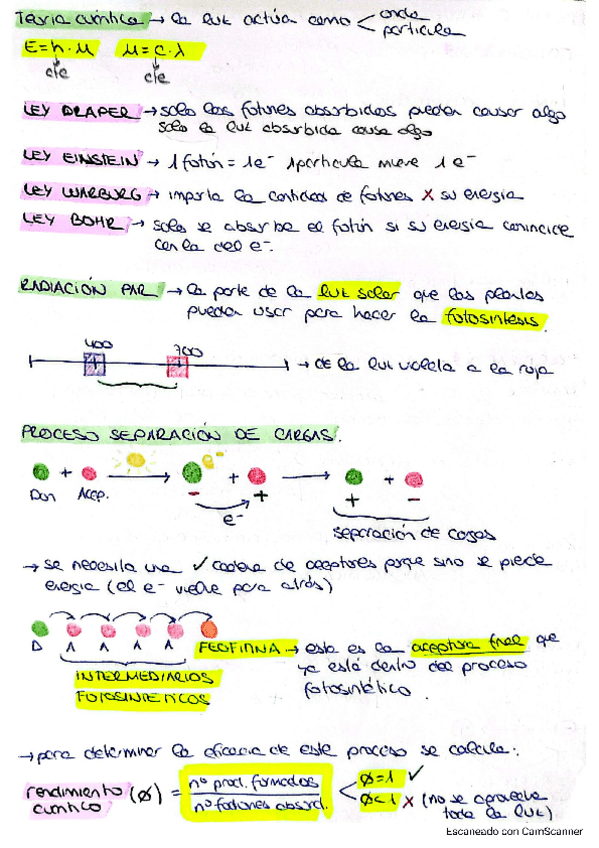 Teoría cuántica → la luz actúa como < onda
partícula
E=h·μ   μ=c·λ
cte   cte
LEY DRAPER → solo los fotones absorbidos pueden causar algo
solo la luz absorbida causa algo
LEY EINSTEIN → 1 fotón = 1e⁻ 1 partícula mueve 1 e⁻
LEY WARBURG → importa la cantidad de fotones X su energía
LEY BOHR → solo se absorbe el fotón si su energía conincide
con la del e⁻.
RADIACIÓN PAR → la parte de la luz solar que las plantas
pueden usar para hacer la fotosíntesis.
400   700
→ de la luz violeta a la roja
PROCESO SEPARACIÓN DE CARGAS.
+ → + → +
Don   Acep.   -   +   +   -
e⁻   separación de cargas
→ se necesita una ✓ cadena de aceptores porque sino se pierde
energía (el e⁻ vuelve para atrás)
D   A   A   A   A   FEOFITINA → esta es la aceptora final que
ya está dentro del proceso
fotosintético.
INTERMEDIARIOS
FOTOSINTETICOS
→ para determinar la eficacia de este proceso se calcula:
rendimiento cuántico (Ø) = nº prod. formados / nº fotones absord. < Ø=1 ✓
Ø<1 X (no se aprovecha
toda la luz)
Escaneado con CamScanner